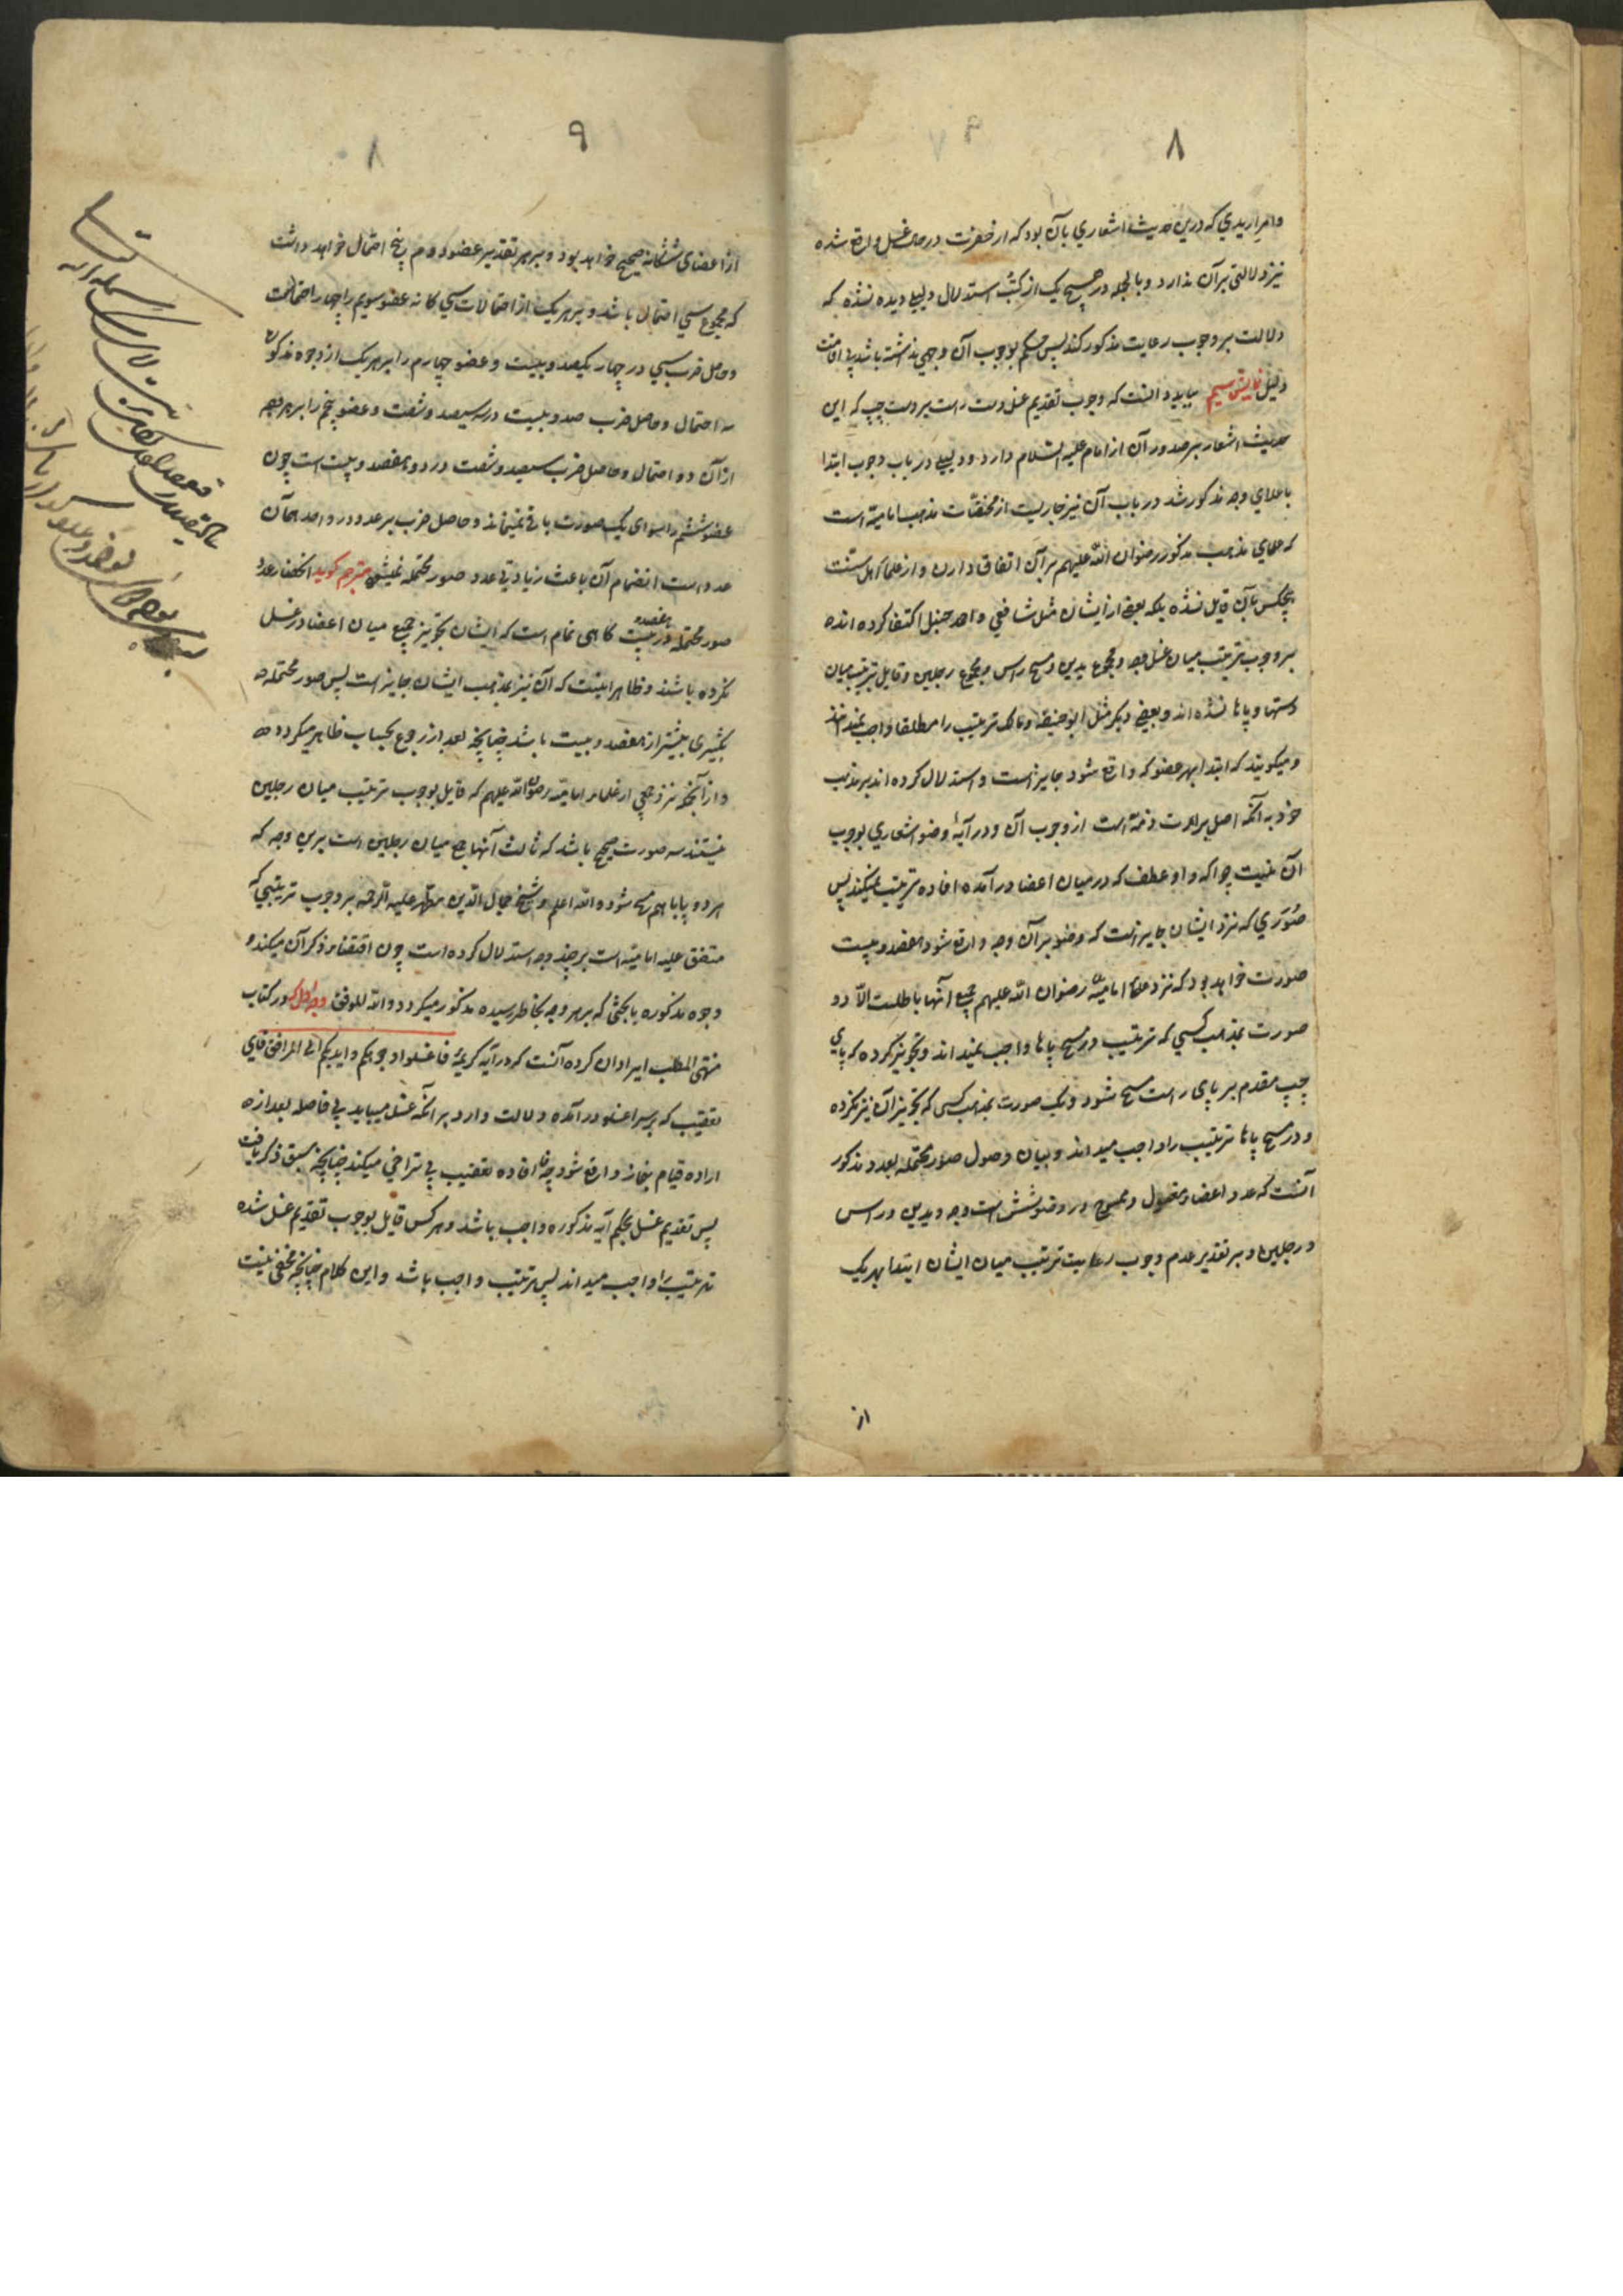 ۸
و امرار یدی که درین حدیث اشعاری بآن بود که از حضرت در حال غسل واقع شده
نیز دلالتی بر آن ندارد و بالجمله در هیچ یک از کتب استدلال دلیلی دیده نشده که
دلالت بر وجوب رعایت مذکور کند پس حکم بوجوب آن وجهی نداشته باشد بی اقامت
دلیل نمایش سیم بباید دانست که وجوب تقدیم غسل دست راست بر دست چپ که این
حدیث اشعار بر صدور آن از امام علیه السلام دارد و دلیلی در باب وجوب ابتدا
باعلای وجه مذکور شد در باب آن نیز جاریست از مختصات مذهب امامیه است
که علمای مذهب مذکور رضوان الله علیهم بر آن اتفاق دارند و از علمای اهل سنت
هیچکس بآن قایل نشده بلکه بعضی از ایشان مثل شافعی و احمد حنبل اکتفا کرده اند
بر وجوب ترتیب میان غسل وجه و مجموع یدین و مسح راس و مجموع رجلین و قایل بترتیب میان
دستها و پاها نشده اند و بعضی دیگر مثل ابو حنیفه و مالک ترتیب را مطلقا واجب نمیدانند
و میگویند که ابتدا بهر عضو که واقع شود جایز است و استدلال کرده اند بر مذهب
خود به آنکه اصل برائت ذمه است از وجوب آن و در آیهٔ وضو اشعاری بوجوب
آن نیست چرا که واو عطف که در میان اعضا در آمده افاده ترتیب نمیکند پس
صوری که نزد ایشان جایز است که وضو بر آن وجه واقع شود هفصد و بیست
صورت خواهد بود که نزد علمای امامیه رضوان الله علیهم جمیع آنها باطلست الا دو
صورت بمذهب کسی که ترتیب در مسح پاها واجب نمیداند و تجویز کرده که پای
چپ مقدم بر پای راست مسح شود و یک صورت بمذهب کسی که تجویز آن نیز نکرده
و در مسح پاها ترتیب را واجب میداند و بیان وصول صور محتمله بعدد مذکور
آنست که عدد اعضاء مغسول و ممسوح در وضو شش است وجه و یدین و راس
و رجلین و بر تقدیر عدم وجوب رعایت ترتیب میان ایشان ابتدا بهر یک
از
۹
۸
از اعضای ششگانه صحیح خواهد بود و بر هر تقدیر عضو دوم پنج احتمال خواهد داشت
که مجموع سی احتمال باشد و بر هر یک از احتمالات سی گانه عضو سویم را چهار احتمالست
و حاصل ضرب سی در چهار یکصد و بیست و عضو چهارم را بر هر یک از وجوه مذکور
سه احتمال و حاصل ضرب صد و بیست در سه سیصد و شصت و عضو پنجم را بر هر وجه
از آن دو احتمال و حاصل ضرب سیصد و شصت در دو هفصد و بیست است چون
عضو ششم را سوای یک صورت باقی نمیماند و حاصل ضرب هر عدد در واحد همان
عدد است انضمام آن باعث زیادتی عدد صور محتمله نمیشود مترجم گوید انحصار عدد
صور محتمله در هفصد و بیست گاهی تمام است که ایشان تجویز جمع میان اعضا در غسل
نکرده باشند و ظاهرا اینست که آن نیز بمذهب ایشان جایز است پس صور محتمله
بکثیری بیشتر از هفصد و بیست باشد چنانچه بعد از رجوع بحساب ظاهر میگردد
و از آنجمله نزد جمعی از علماء امامیه رضوان الله علیهم که قایل بوجوب ترتیب میان رجلین
نیستند سه صورت صحیح باشد که ثالث آنها جمع میان رجلین است برین وجه که
هر دو پا باهم مسح شود و الله اعلم و شیخ جمال الدین مطهر علیه الرحمه بر وجوب ترتیبی که
متفق علیه امامیه است بر چند وجه استدلال کرده است چون اقتضاء ذکر آن میکند
وجوه مذکوره با بحثی که بر هر وجه بخاطر رسیده مذکور میگردد و الله الموفق وجه اول که در کتاب
منتهی المطلب ایراد آن کرده آنست که در آیه کریمهٔ فاغسلوا وجوهکم و ایدیکم الی المرافق فای
تعقیب که بر سر اغسلوا در آمده دلالت دارد بر آنکه غسل میباید بی فاصله بعد از
اراده قیام بنماز واقع شود چه فا افاده تعقیب بی تراخی میکند چنانچه سبق ذکر یافت
پس تقدیم غسل بحکم آیه مذکوره واجب باشد و هر کس قایل بوجوب تقدیم غسل شده
ترتیب را واجب میداند پس ترتیب واجب باشد و این کلام چنانچه مخفی نیست